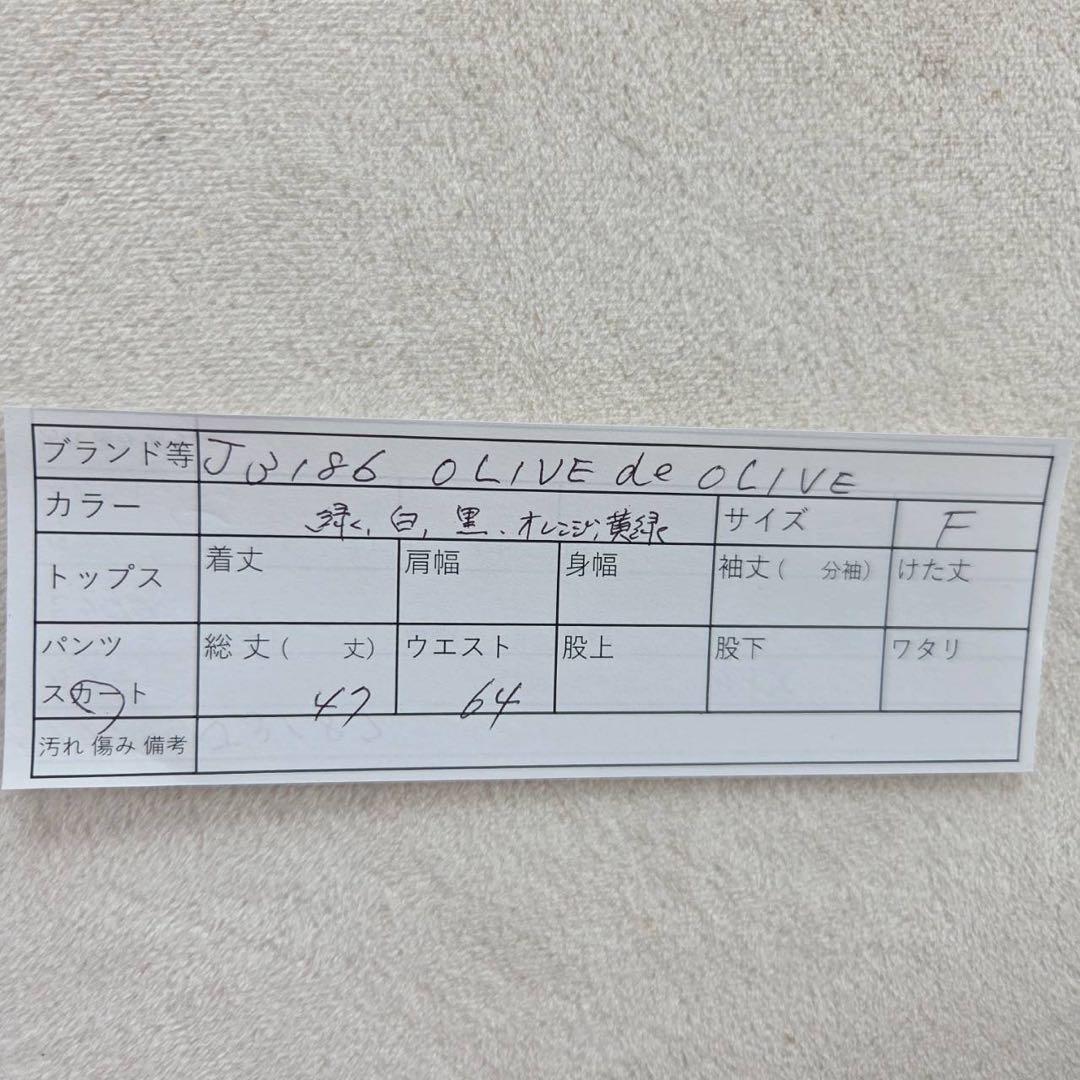 ブランド等 J3186 OLIVE de OLIVE
カラー 緑、白、黒、オレンジ、黄緑 サイズ F
トップス 着丈 肩幅 身幅 袖丈( 分袖) けた丈
パンツ 総丈( 丈) ウエスト 股上 股下 ワタリ
スカート 47 64
汚れ 傷み 備考